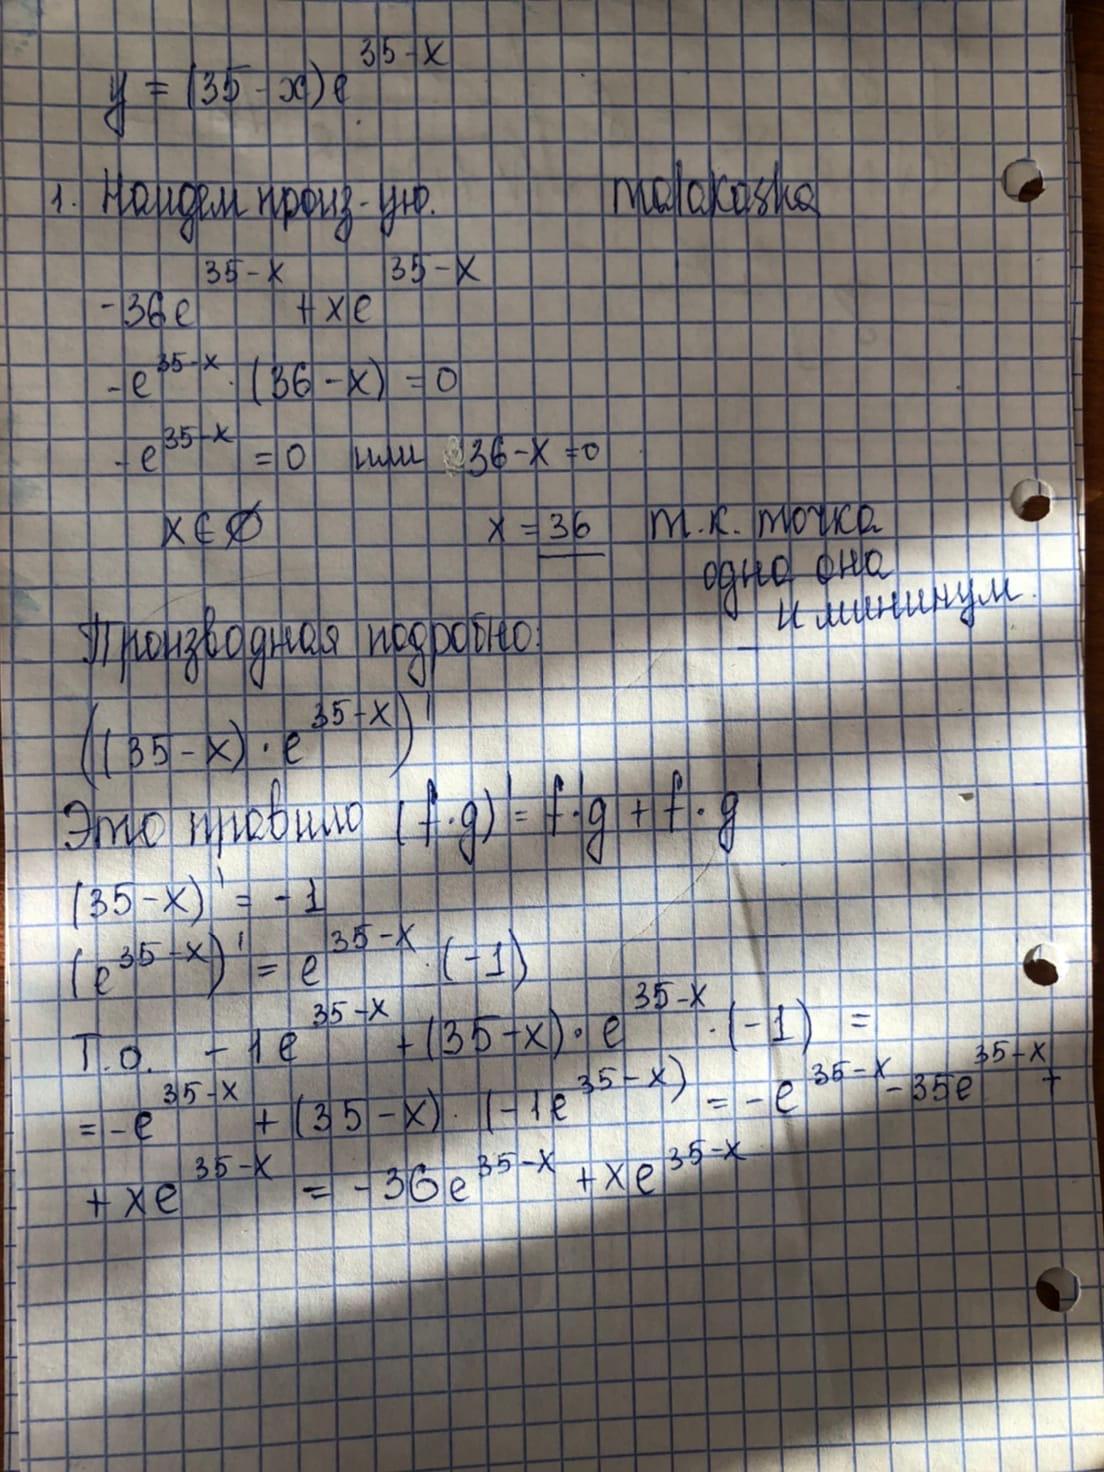 y = (35-x)e^{35-x}
1. Найдем произ-ую. malakaska
-36e^{35-x} + xe^{35-x}
-e^{35-x} · (36-x) = 0
-e^{35-x} = 0 или 36-x=0
x ∈ ∅ x = 36 т.к. точка
одна она
и мининум.
Производная подробно:
((35-x)·e^{35-x})'
Это правило (f·g)' = f'·g + f·g'
(35-x)' = -1
(e^{35-x})' = e^{35-x}·(-1)
Т.о. -1e^{35-x} + (35-x)·e^{35-x}·(-1) =
= -e^{35-x} + (35-x)·(-1e^{35-x}) = -e^{35-x} - 35e^{35-x} +
+ xe^{35-x} = -36e^{35-x} + xe^{35-x}